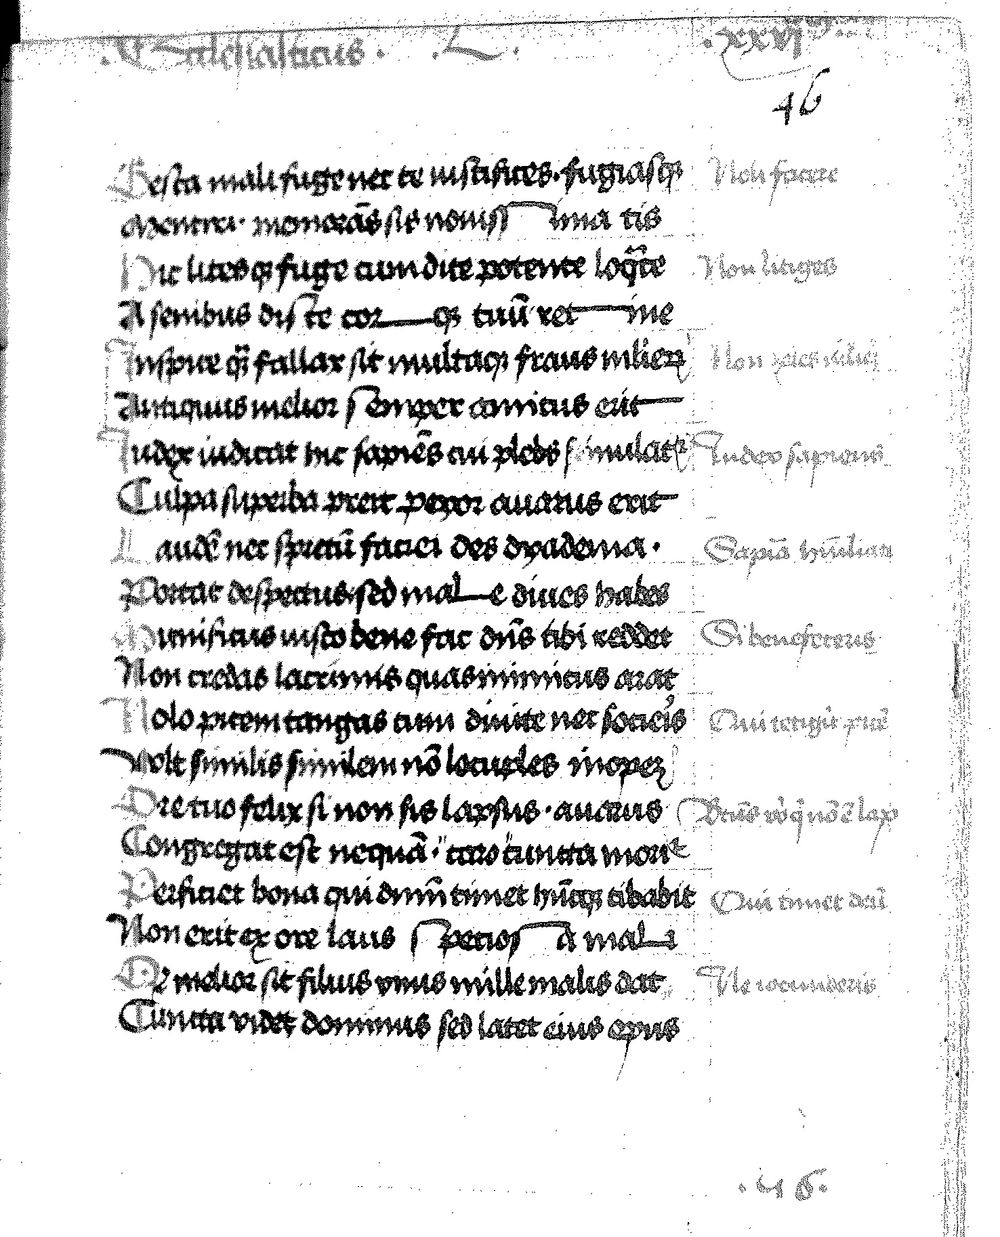 Ecclesiasticus . L . xxvi
46
Gesta mali fuge nec te iustifices. fugiasqꝫ Noli facere
Mentiri. memorās sis noviss ima tis
Hic litesqꝫ fuge cum dite potente loq̄re Non litiges
A senibus disce cor qꝫ tuū ret ine
Inspice qͥ fallax sit multaqꝫ fraus mulieꝝ Non
Antiquus melior semper amicus erit
Iudex iudicat hic sapiēs cui plebs simulatʳ Iudex sapiens
Culpa superba preit peyor avarus erit
Laudē nec spretū faciei des dyadema . Sapiā humiliati
Portat despectus sed mal e dives habes
Munificus iusto bene fac dn̄s tibi reddet Si benefeceris
Non credas lacrimis quas inimicus arat
Nolo picem tangas cum divite nec socieis Qui tetigit picē
Volt similis similem nō locuples inopeꝝ
Ore tuo felix si non sis lapsus . avarus Btūs vir qͥ nō ē lap
Congregat est nequā . caro cuncta morit
Perficiet bona qui dnm̄ timet hūcqꝫ cibabit Qui timet deū
Non erit ex ore laus specios a mal i
Or melior sit filius unus mille malis dat Ne iocunderis
Cuncta videt dominus sed latet eius opus
. 46 .